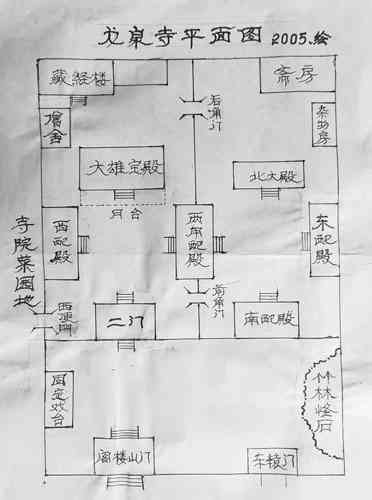 龙泉寺平面图 2005.绘
藏经楼
斋房
僧舍
后角门
杂物房
大雄宝殿
北大殿
月台
西配殿
两用配殿
东配殿
寺院菜园地
西便門
二门
前角门
南配殿
固定戏台
竹林怪石
阁楼山门
车棱门